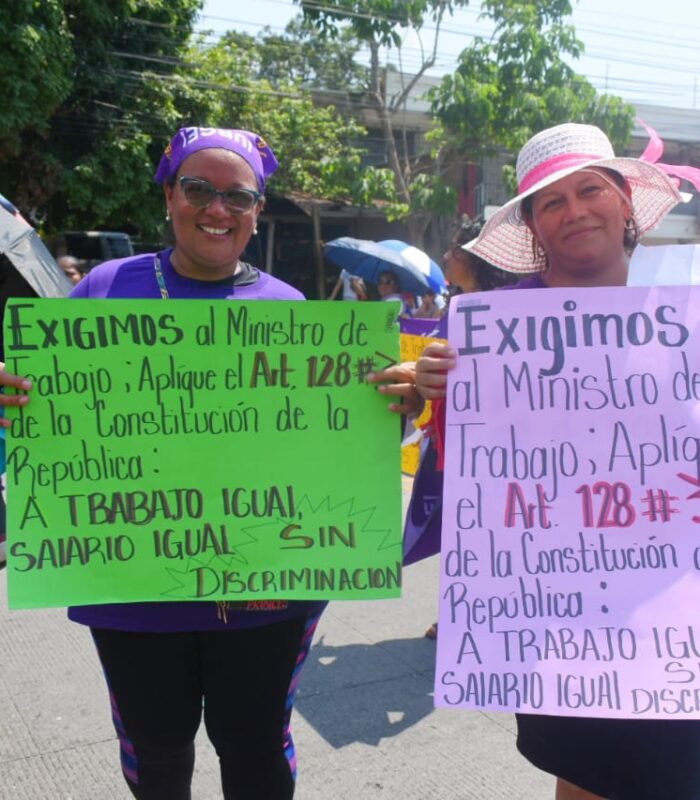 EXIGIMOS al Ministro de
Trabajo ; Aplique el Art. 128#
de la Constitución de la
República :
A TRABAJO IGUAL,
SALARIO IGUAL SIN
DISCRIMINACION
Exigimos
al Ministro de
Trabajo ; Apliq
el Art. 128 #
de la Constitución
República :
A TRABAJO IGU
SALARIO IGUAL